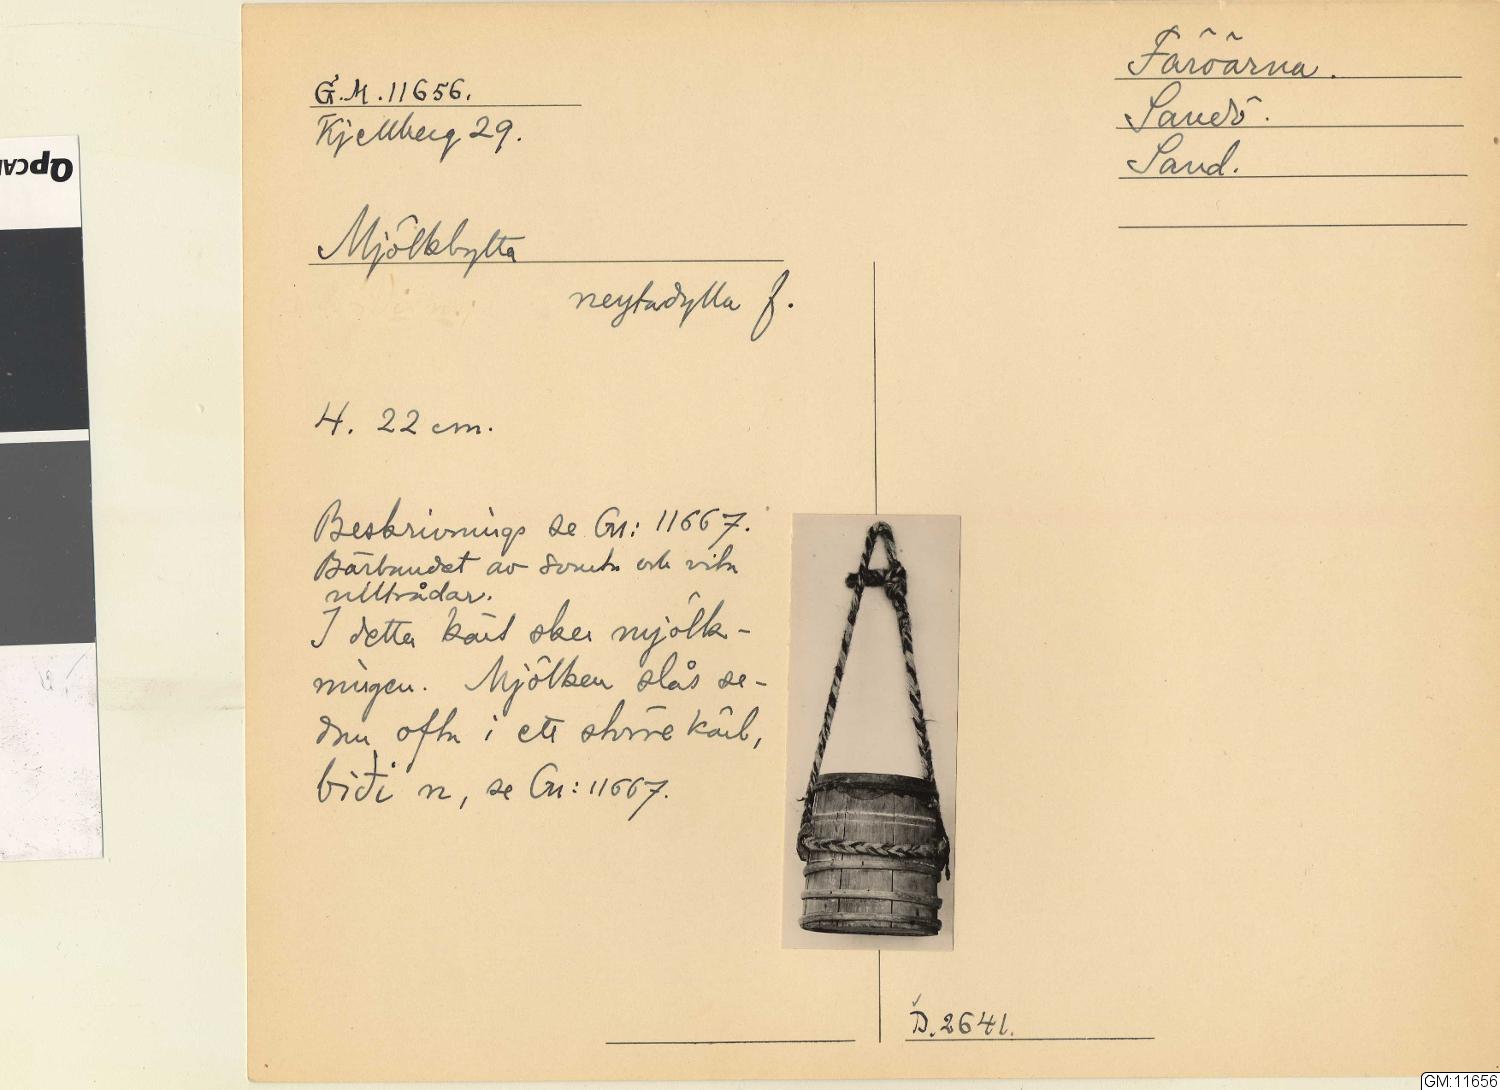 G.M. 11656.
Kjellberg 29.
Färöarna.
Sandö.
Sand.
Mjölkbytta
neytadylla f.
H. 22 cm.
Beskrivnings se Gn: 11667.
Bärbandet av svarta och vita
ulltrådar.
I detta kärl sker mjölk-
ningen. Mjölken slås se-
dan ofta i ett större kärl,
biði n, se Gn: 11667.
D. 2641.
GM:11656